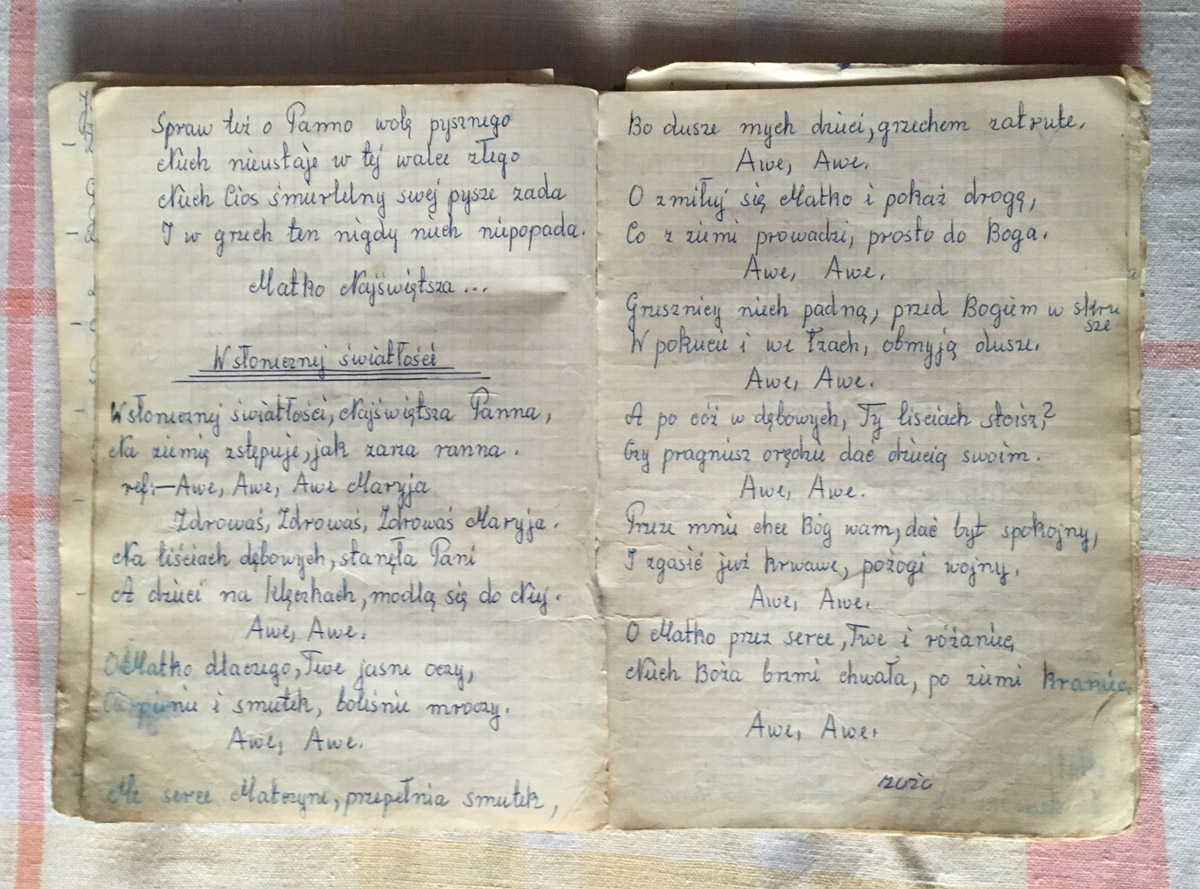 Spraw też o Panno wolę pysznego
Niech nieustaje w tej walce złego
Niech Cios śmiertelny swej pysze zada
I w grzech ten nigdy niech niepopada.
Matko Najświętsza...
W słonecznej światłości
W słonecznej światłości, Najświętsza Panna,
Na ziemię zstępuje, jak zarza ranna.
ref:—Awe, Awe, Awe Maryja
Zdrowaś, Zdrowaś, Zdrowaś Maryja.
Na liściach dębowych, stanęła Pani
A dzieci na klęczkach, modlą się do Niej.
Awe, Awe.
O Matko dlaczego, Twe jasne oczy,
Cierpienie i smutek, boleśnie mroczy.
Awe, Awe.
Me serce Matczyne, przepełnia smutek,
Bo dusze mych dzieci, grzechem zatrute.
Awe, Awe.
O zmiłuj się Matko i pokaż drogę,
Co z ziemi prowadzi, prosto do Boga.
Awe, Awe.
Grzesznicy niech padną, przed Bogiem w skru
sze
W pokucie i we łzach, obmyją dusze.
Awe, Awe.
A po cóż w dębowych, Ty liściach stoisz?
Czy pragniesz orędzie dać dziecią swoim.
Awe, Awe.
Przeze mnie chce Bóg wam, dać byt spokojny,
I zgasić już krwawe, pożogi wojny.
Awe, Awe.
O Matko przez serce, Twe i różaniec
Niech Boża brzmi chwała, po ziemi kraniec.
Awe, Awe.